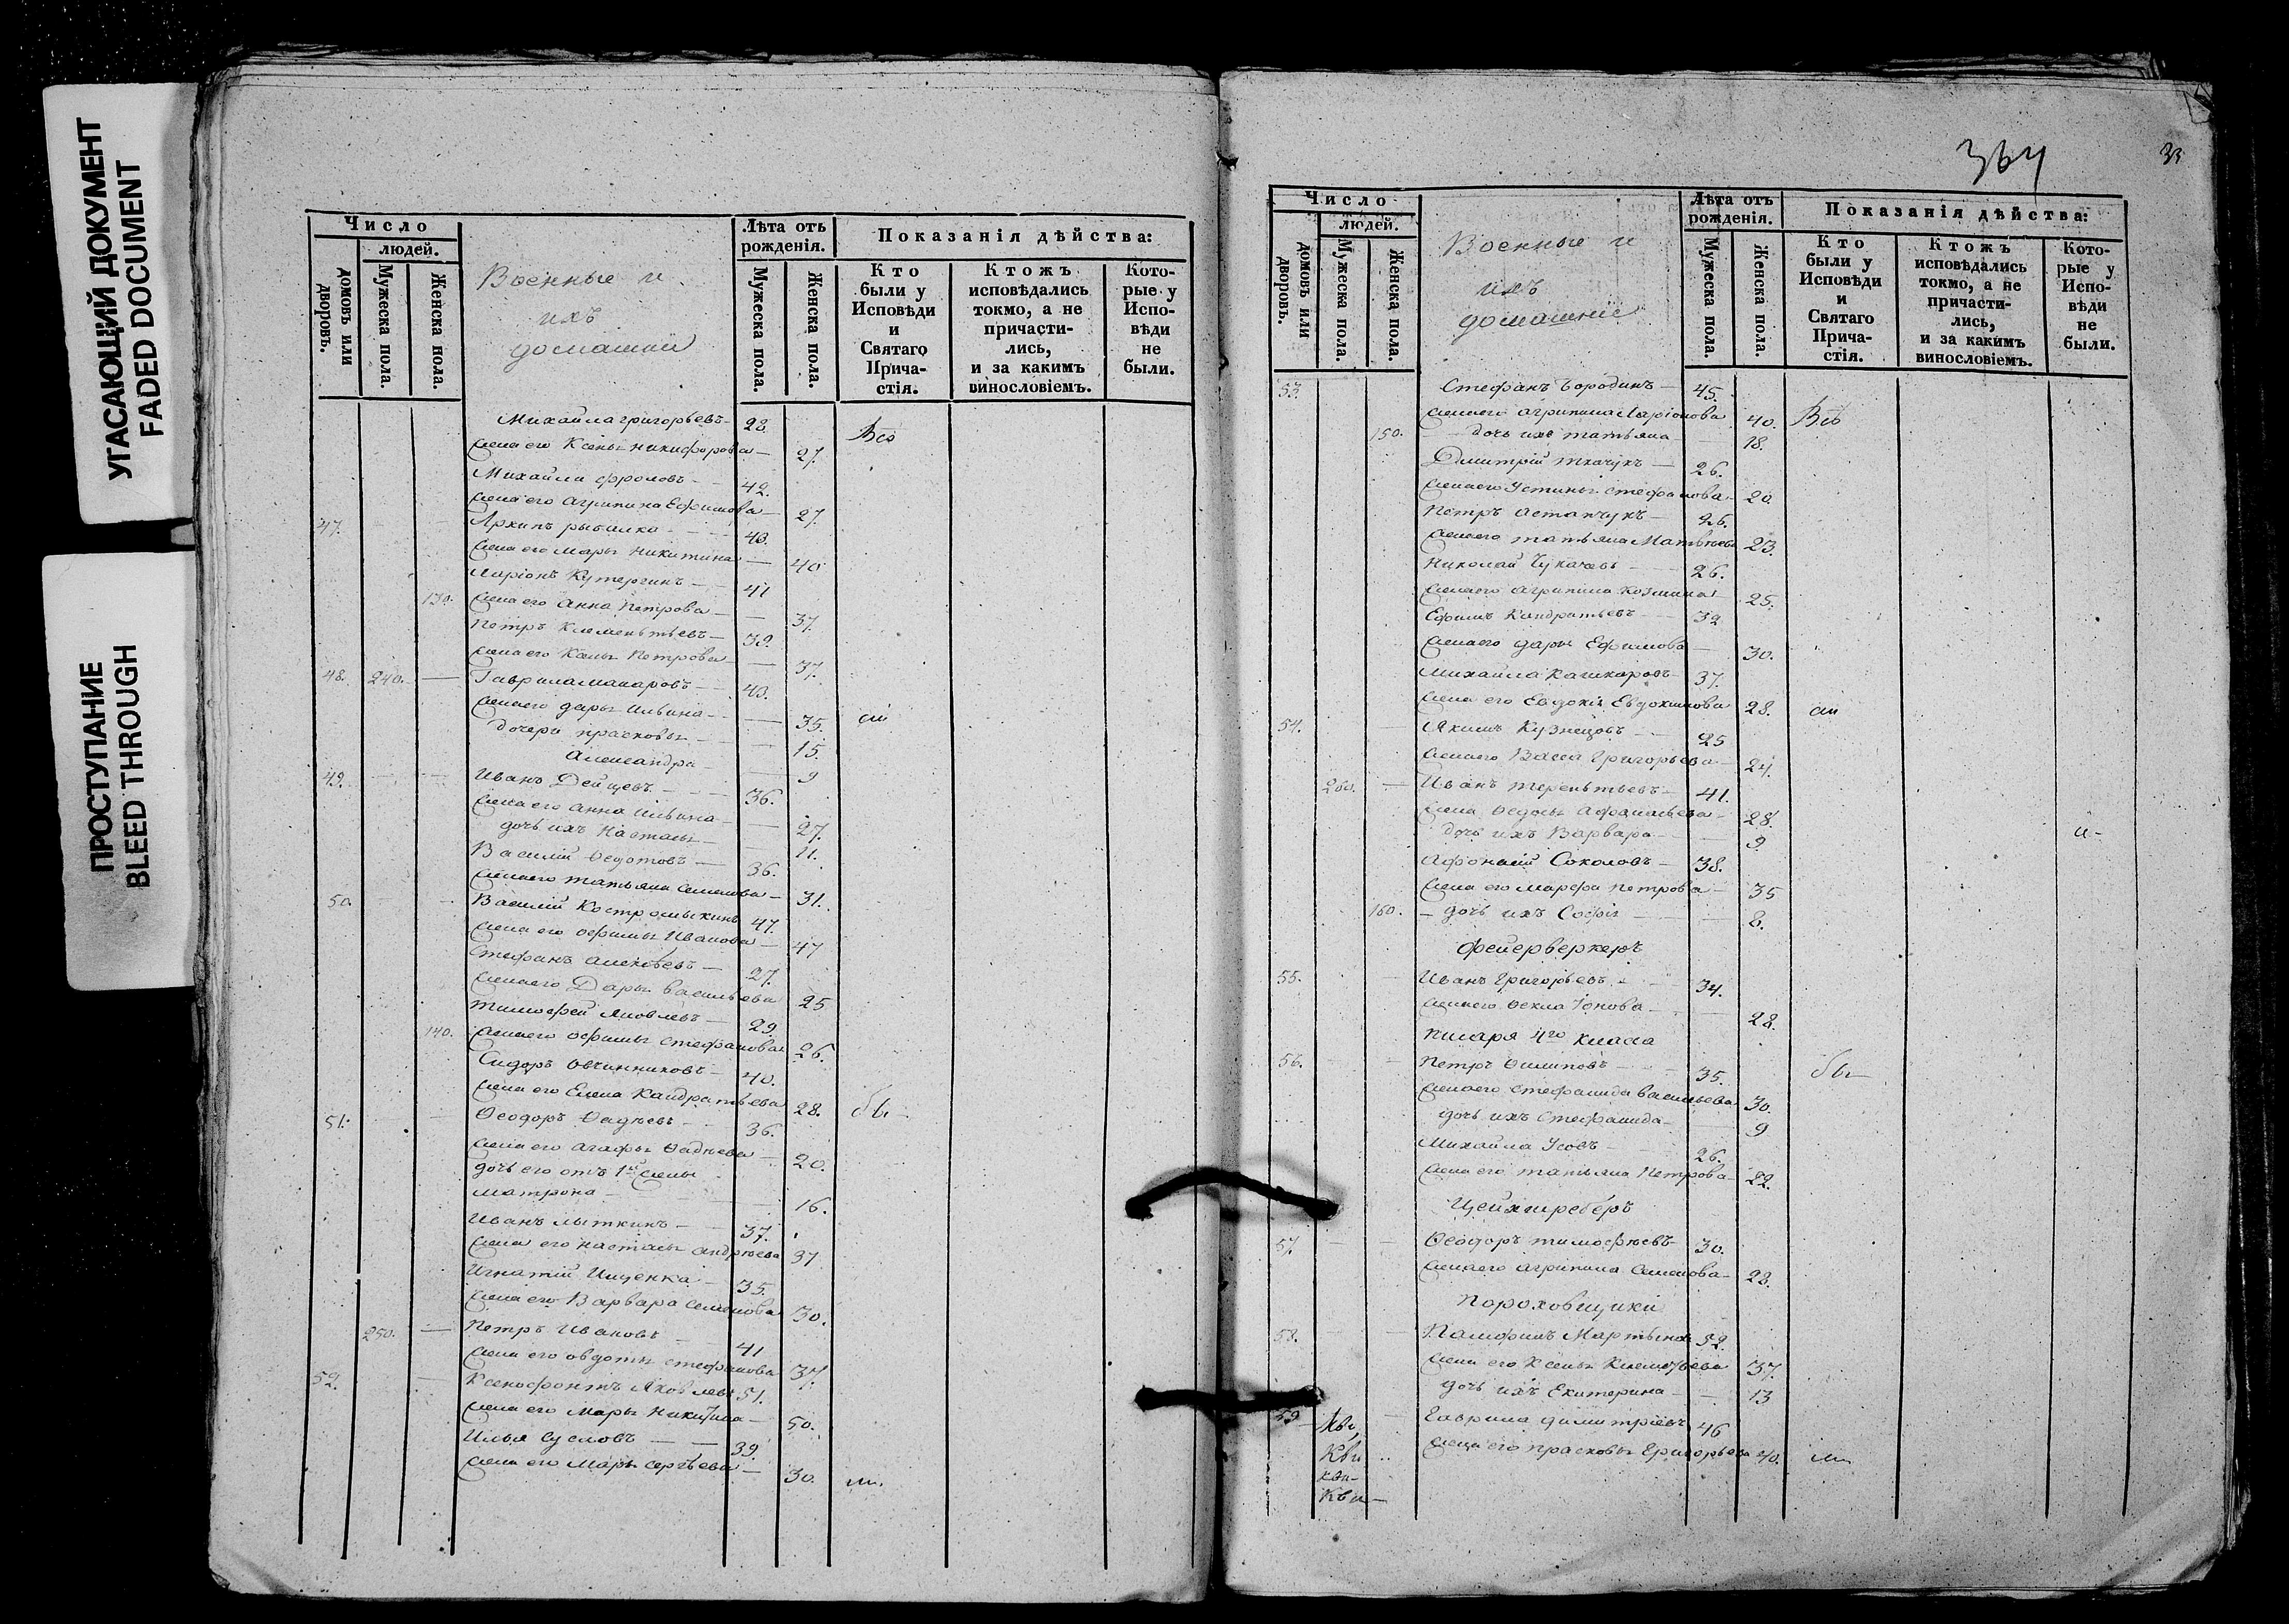 УГАСАЮЩИЙ ДОКУМЕНТ
FADED DOCUMENT
ПРОСТУПАНИЕ
BLEED THROUGH
Число
людей.
домовъ или дворовъ.
Мужеска пола.
Женска пола.
Военные и
ихъ
домашніи
Лѣта отъ рожденія.
Мужеска пола.
Женска пола.
Показанія дѣйства:
Кто были у Исповѣди и Святаго Прича-стія.
Ктожъ исповѣдались токмо, а не причасти-лись, и за какимъ винословіемъ.
Кото-рые у Испо-вѣди не были.
Михайла григорьевъ 28.
жена его Ксенья никифорова 27.
Михайла фроловъ 42.
жена его Агрипина Ефимова 27.
47. Архипъ рыбалка 43.
жена его марья Никитина 40
Ларіонъ Кутергинъ 41
130. жена его Анна Петрова 37.
Петръ Клементьевъ 39.
жена его Петрова 37.
48. 240. Гаврила Макаровъ 43.
жена его дарья Ильина 35.
дочери прасковья 15.
Александра 9
49. Иванъ 36.
жена его анна Ильина 27.
дочь ихъ Настасья 11.
Василій Ѳедотовъ 36.
жена его татьяна семенова 31.
50. Василій Костромыкинъ 47.
жена его офимья Иванова 47
Стефанъ Алексѣевъ 27.
жена его Дарья васильева 25
Тимофей Яковлевъ 29.
140. жена его офимья стефанова 26.
Сидоръ Овчинниковъ 40.
жена его Елена Кандратьева 28. бы
51. Ѳеодоръ Ѳадѣевъ 36.
жена его агафья Ѳадѣева 20.
дочь его отъ 1й жены
матрона 16.
Иванъ лыткинъ 37.
жена его настасья андреева 37
Игнатій Ищенка 35.
жена его Варвара семенова 30.
250. Петръ Ивановъ 41
жена его овдотья стефанова 37.
52. Ксенофонтъ Яковлевъ 51.
жена его Марья Никитина 50.
Илья Сусловъ 39.
жена его Марья сергѣева 30. ли.
364
33
Число
людей.
домовъ или дворовъ.
Мужеска пола.
Женска пола.
Военные и
ихъ
домашніе
Лѣта отъ рожденія.
Мужеска пола.
Женска пола.
Показанія дѣйства:
Кто были у Исповѣди и Святаго Прича-стія.
Ктожъ исповѣдались токмо, а не причасти-лись, и за какимъ винословіемъ.
Кото-рые у Испо-вѣди не были.
53. Стефанъ Бородинъ 45.
жена его агрипина Ларіонова 40. Всѣ
150. дочь ихъ татьяна 18.
Дмитрій ткачукъ 26.
жена его Устинья стефанова 20.
Петръ Астапчукъ 26.
жена его татьяна Матвѣева 23.
Николай Чукачевъ 26.
жена его агрипина Козмина 25.
Ефимъ Кандратьевъ 32
жена его дарья Ефимова 30.
Михайла Кашкаровъ 37.
жена его Евдокія Евдокимова 28. сіи
54. Якимъ Кузнецовъ 25
жена его Васса Григорьева 24.
260. Иванъ терентьевъ 41.
жена Ѳедосья Афанасьева 28.
дочь ихъ Варвара 9.
Афонасій Соколовъ 38.
жена его марфа петрова 35
160. дочь ихъ Софія 8.
фейерверкеръ
55. Иванъ Григорьевъ 34.
жена его Ѳекла Іонова 28.
писаря 4го класса
56. Петръ Филиповъ 35. бы
жена его стефанида васильева 30.
дочь ихъ стефанида 9
Михайла Усовъ 26.
жена его татьяна Петрова 22.
Цейхшреберъ
57. Ѳеодоръ тимофѣевъ 30.
жена его агрипина Семенова 28.
Пороховщики
58. Памфилъ Мартыновъ 52.
жена его Ксенья Клементьева 37.
дочь ихъ Екатерина 13
59 Гаврила димитріевъ 46
жена его прасковья Григорьева 40. ли